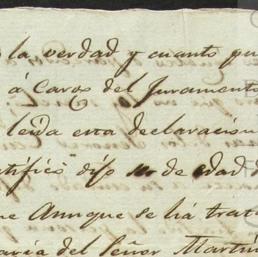 la verdad y cuanto pu
á Cargo del Juramento
leida esta declaracion
tifico dijo ser de edad d
ue Aunque se há trata
aria del Señor Martin